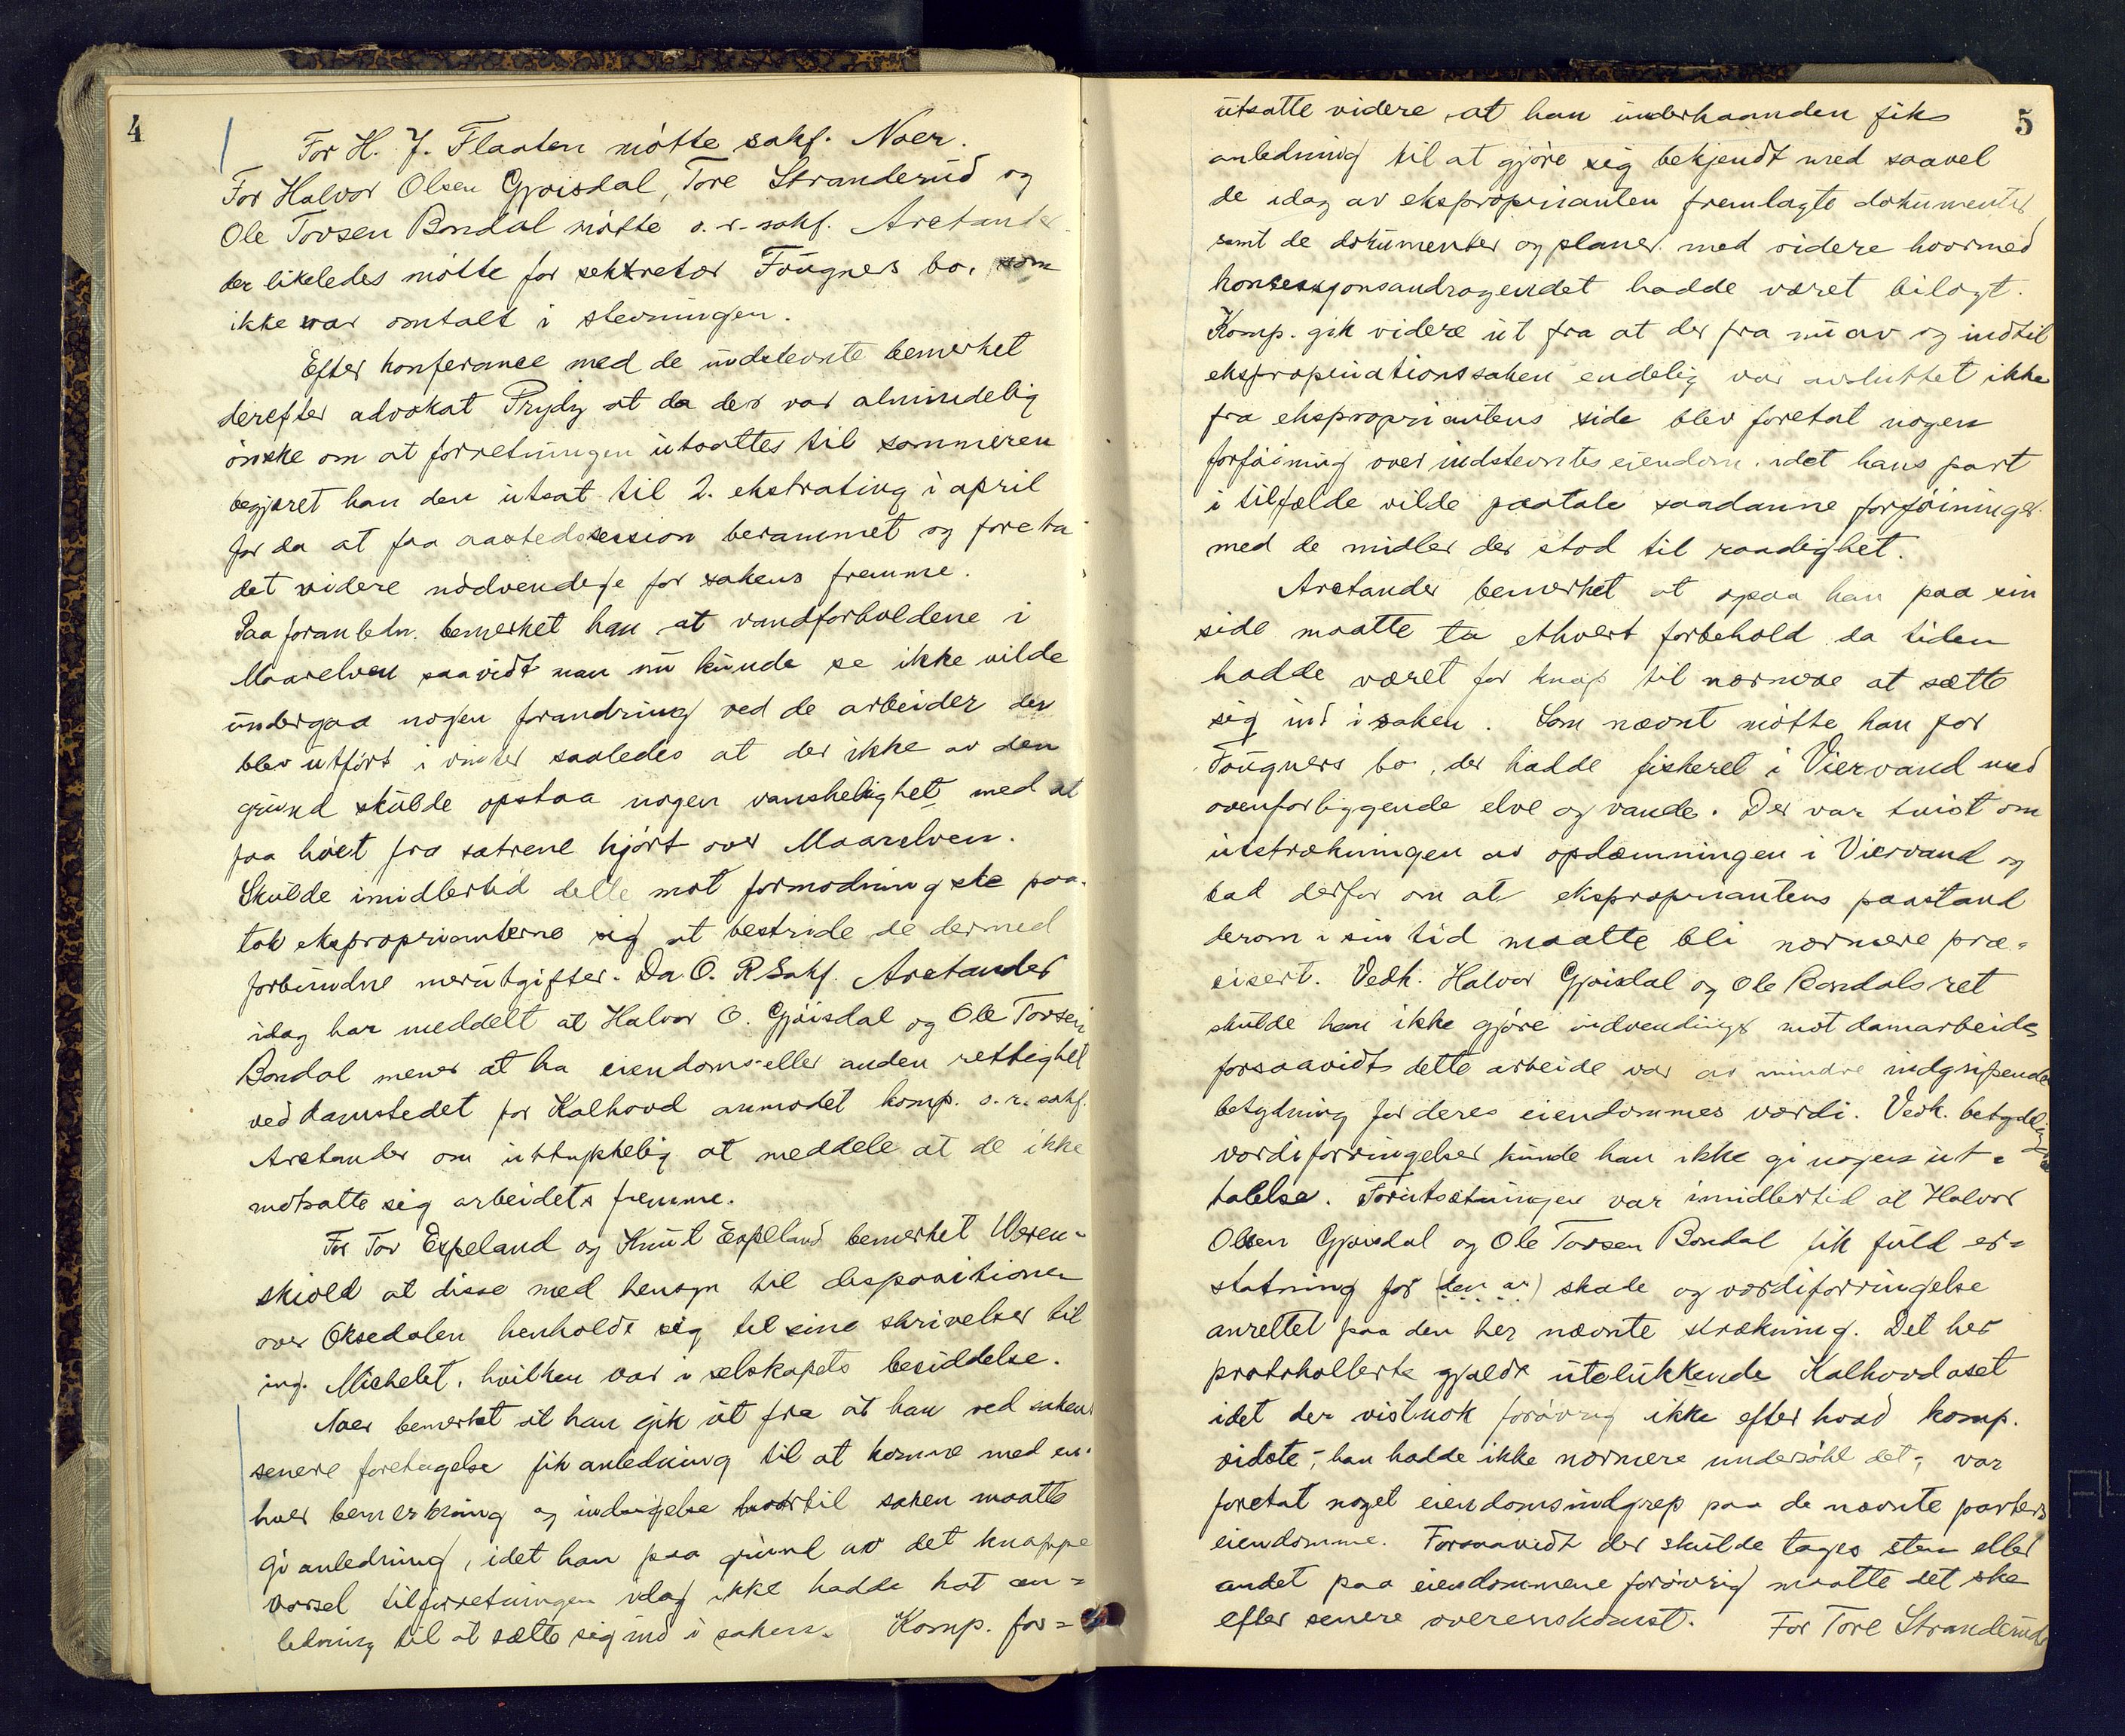 4
For H. J. Flaaten møtte sakf. Naer.
For Halvor Olsen Gjøisdal, Tore Stranderud og
Ole Torsen Bondal møtte o.r.sakf. Aretander
der likeledes møtte for sekretær Fougners bo, som
ikke var omtalt i stevningen.
Efter konferance med de indstevnte bemerket
derefter advokat Prydz at da der var almindelig
ønske om at forretningen utsattes til sommeren
begjæret han den utsat til 2. ekstrating i april
for da at faa aastedssession berammet og foreta
det videre nødvendige for sakens fremme.
Paa foranledn. bemerket han at vandforholdene i
Maarelven saavidt man nu kunde se ikke vilde
undergaa nogen forandring ved de arbeider der
blev utført i vinter saaledes at der ikke av den
grund skulde opstaa nogen vanskelighet med at
faa høiet fra sætrene kjørt over Maarelven.
Skulde imidlertid dette mot formodning ske paa-
tok ekspropriantene sig at bestride de dermed
forbundne merutgifter. Da O. R Sakf. Aretander
idag har meddelt at Halvor O. Gjøisdal og Ole Torsen
Bondal mener at ha eiendoms-eller anden rettighet
ved damstedet for Kalhovd anmodet komp. o.r.sakf.
Aretander om uttrykkelig at meddele at de ikke
motsatte sig arbeidets fremme.
For Tov Espeland og Knut Espeland bemerket Weren-
skiold at disse med hensyn til dispositionen
over Oksedalen henholdt sig til sine skrivelser til
ing. Michelet, hvilken var i selskapets besiddelse.
Naer bemerket at han gik ut fra at han ved sakens
senere foretagelse fik anledning til at komme med en-
hver bemerkning og indsigelse hvortil saken maatte
gi anledning, idet han paa grund av det knappe
varsel til forretningen idag ikke hadde hat an-
ledning til at sætte sig ind i saken. Komp. for=
5
utsatte videre, at han underhaanden fik
anledning til at gjøre sig bekjendt med saavel
de idag av eksproprianten fremlagte dokumenter
samt de dokumenter og planer med videre hvormed
konsessjonsandragendet hadde været bilagt.
Komp. gik videre ut fra at der fra nu av og indtil
ekspropriationssaken endelig var avsluttet ikke
fra ekspropriantens side blev foretat nogen
forføining over indstevntes eiendom, idet hans part
i tilfælde vilde paatale saadanne forføininger
med de midler der stod til raadighet.
Aretander bemerket at ogsaa han paa sin
side maatte ta ethvert forbehold da tiden
hadde været for knap til nærmere at sætte
sig ind i saken. Som nævnt møtte han for
Fougners bo, der hadde fiskeret i Viervand med
ovenforliggende elve og vande. Der var tvist om
utstrækningen av opdæmningen i Viervand og
bad derfor om at ekspropriantens paastand
derom i sin tid maatte bli nærmere præ-
cisert. Vedk. Halvor Gjøisdal og Ole Bondals ret
skulde han ikke gjøre indvendinger mot damarbeide
forsaavidt dette arbeide var av mindre indgripende
betydning for deres eiendommes værdi. Vedk. betydelig
værdiforringelser kunde han ikke gi nogen ut-
talelse. Forutsætningen var imidlertid at Halvor
Olsen Gjøisdal og Ole Torsen Bondal fik fuld er=
statning for (den av) skade og værdiforringelse
anrettet paa den her nævnte strækning. Det her
protokollerte gjaldt utelukkende Kalhovdoset
idet der vistnok forøvrig ikke efter hvad komp.
vidste, - han hadde ikke nærmere undersøkt det, - var
foretat noget eiendomsindgrep paa de nævnte parters
eiendomme. Forsaavidt der skulde tages sten eller
andet paa eiendommene forøvrig maatte det ske
efter senere overenskomst. For Tore Stranderud